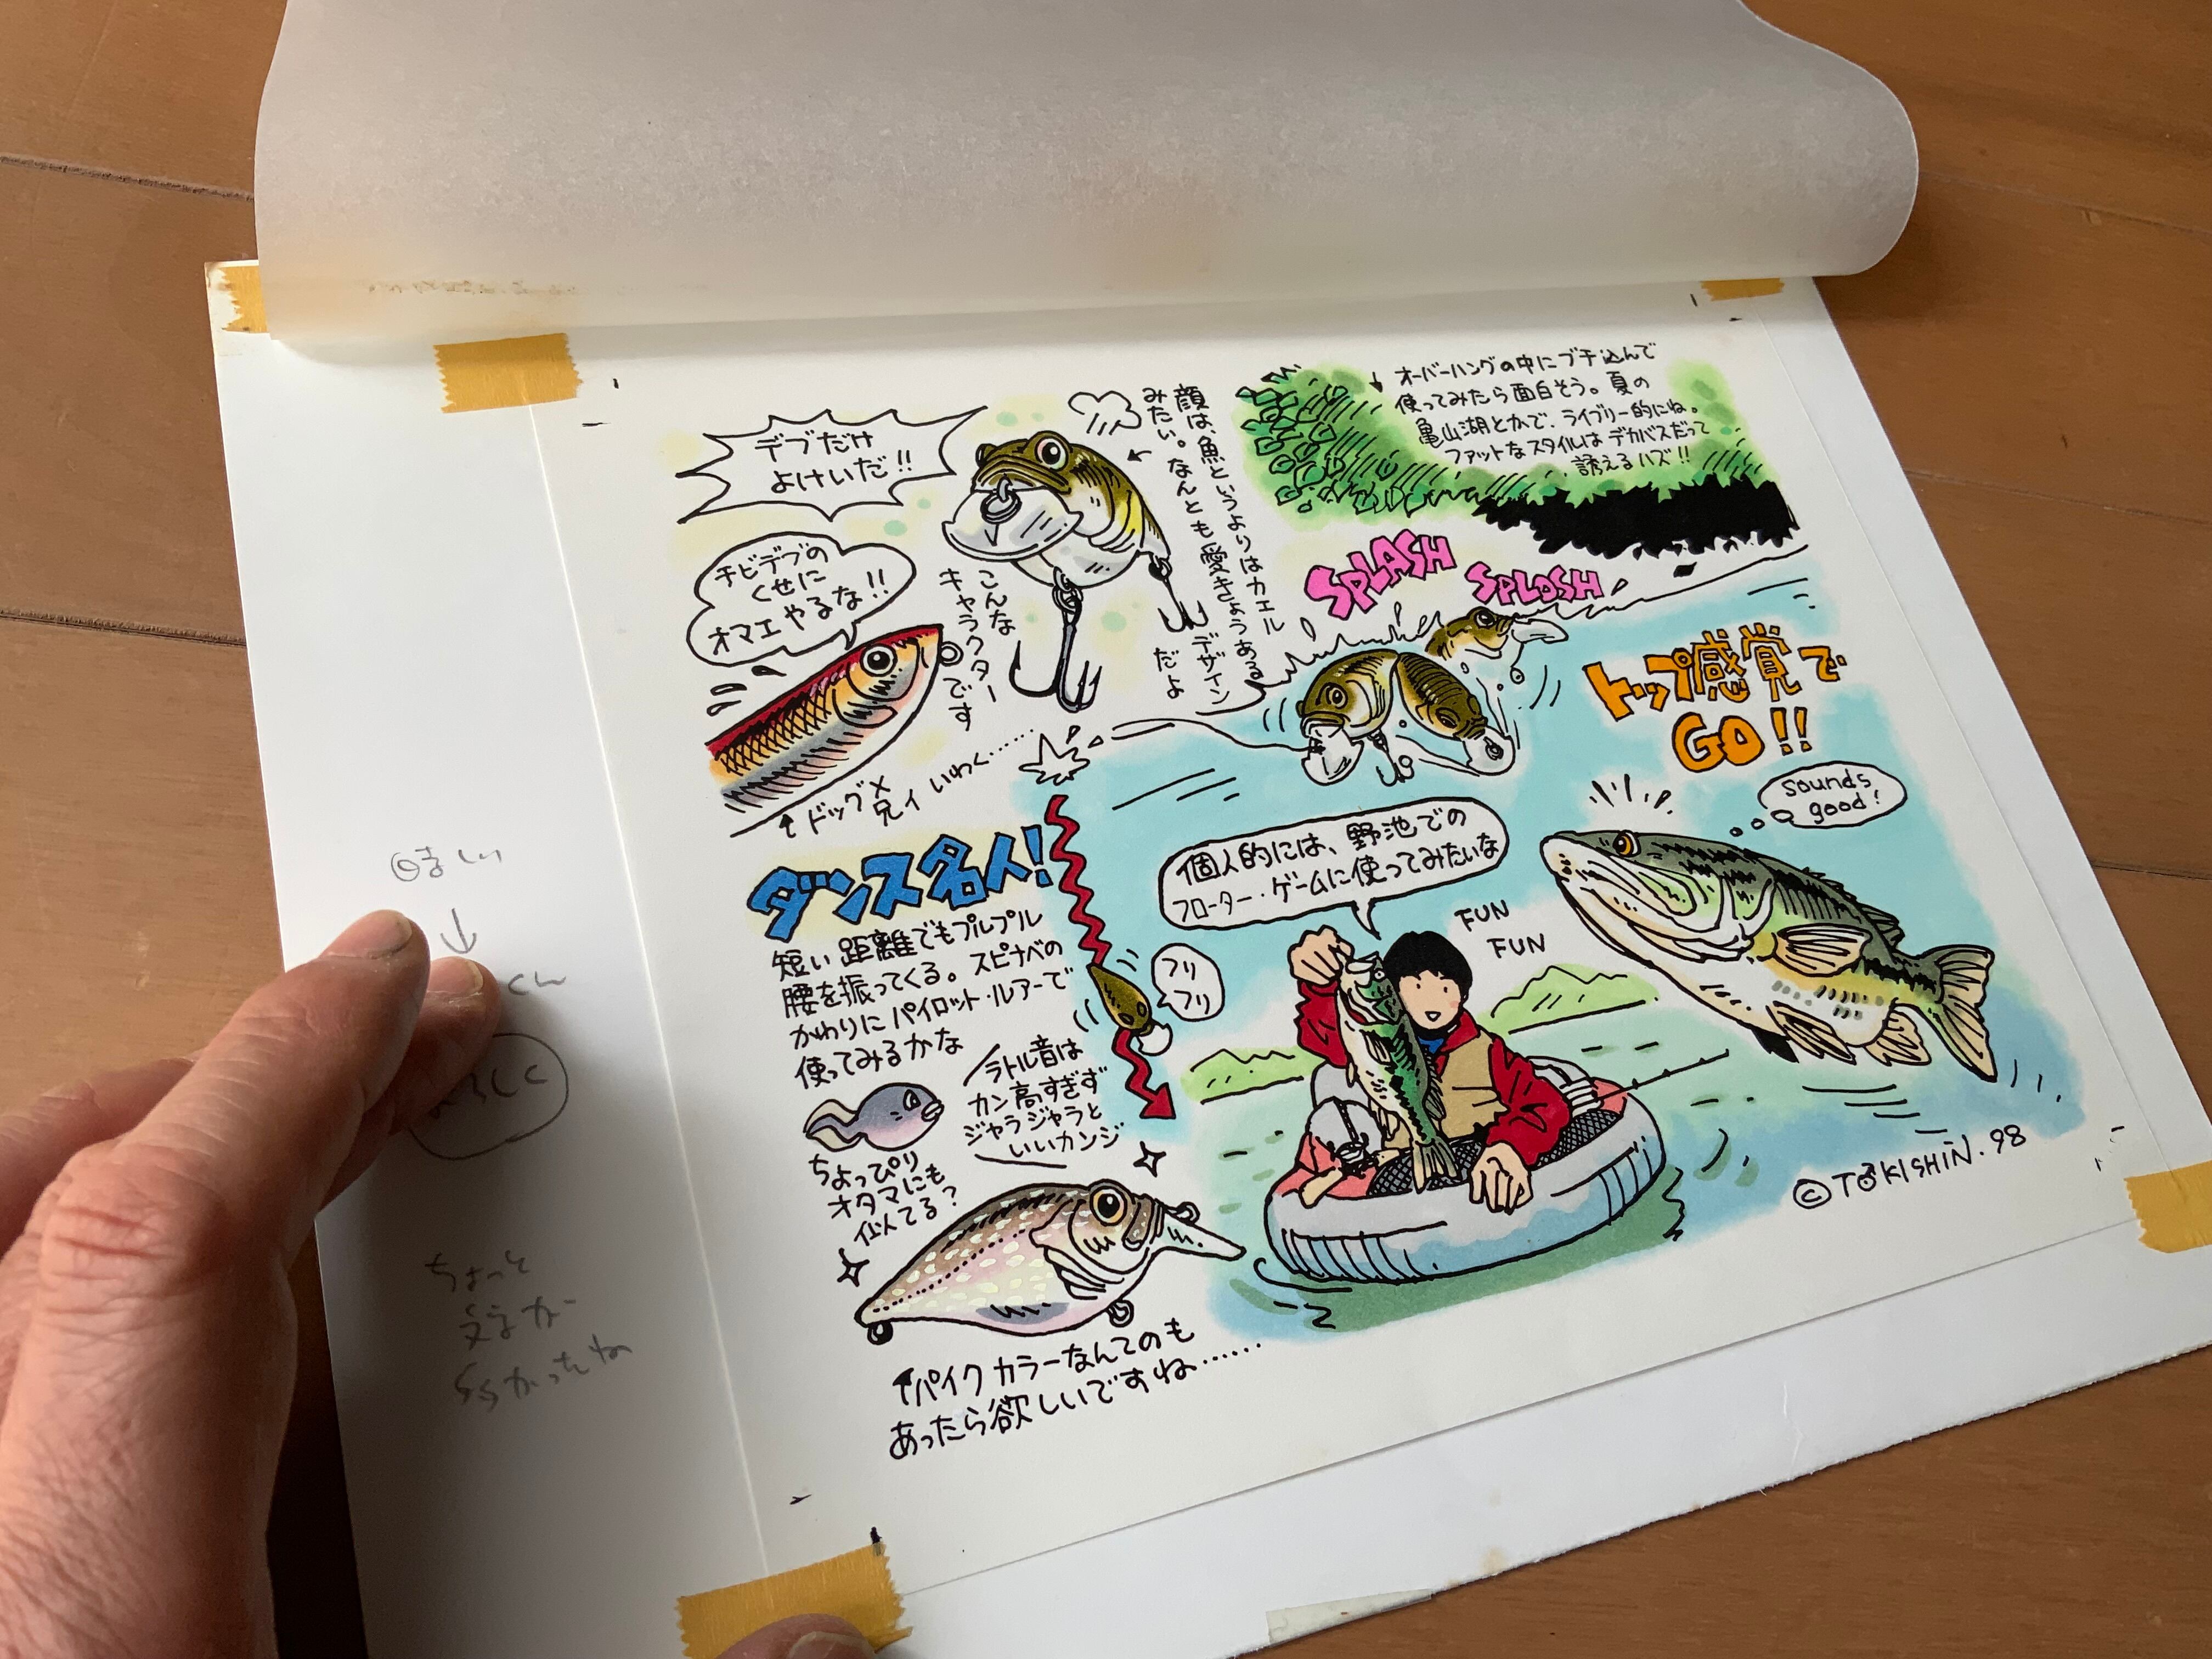 デブだけ
よけいだ!!
チビデブの
くせに
オマエやるな!!
顔は、魚というよりはカエル
みたい。なんとも愛きょうある
デザイン
だよ
こんな
キャラクター
です
ドッグX
兄ィ いわく……
オーバーハングの中にブチ込んで
使ってみたら面白そう。夏の
亀山湖とかで、ライブリー的にね。
ファットなスタイルはデカバスだって
誘えるハズ!!
SPLASH
SPLOSH
トップ感覚で
GO!!
sounds
good!
個人的には、野池での
フローター・ゲームに使ってみたいな
FUN
FUN
ダンス名人!
短い距離でもプルプル
腰を振ってくる。スピナベの
かわりにパイロット・ルアーで
使ってみるかな
フリ
フリ
ラトル音は
カン高すぎず
ジャラジャラと
いいカンジ
ちょっぴり
オタマにも
似てる?
パイクカラーなんてのも
あったら欲しいですね……
©TOKISHIN.98
くん
ちょっと
文字が